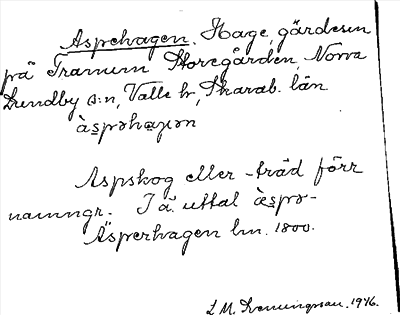 Aspehagen. Hage, gärdesen
på Tranum Storegården, Norra
Lundby s:n, Valle hr, Skarab. län
àspəhaɡən
Aspskog eller -träd förr
namngr. I ä. uttal àspə-
Äsperhagen hn. 1800.
L. M. 1916.